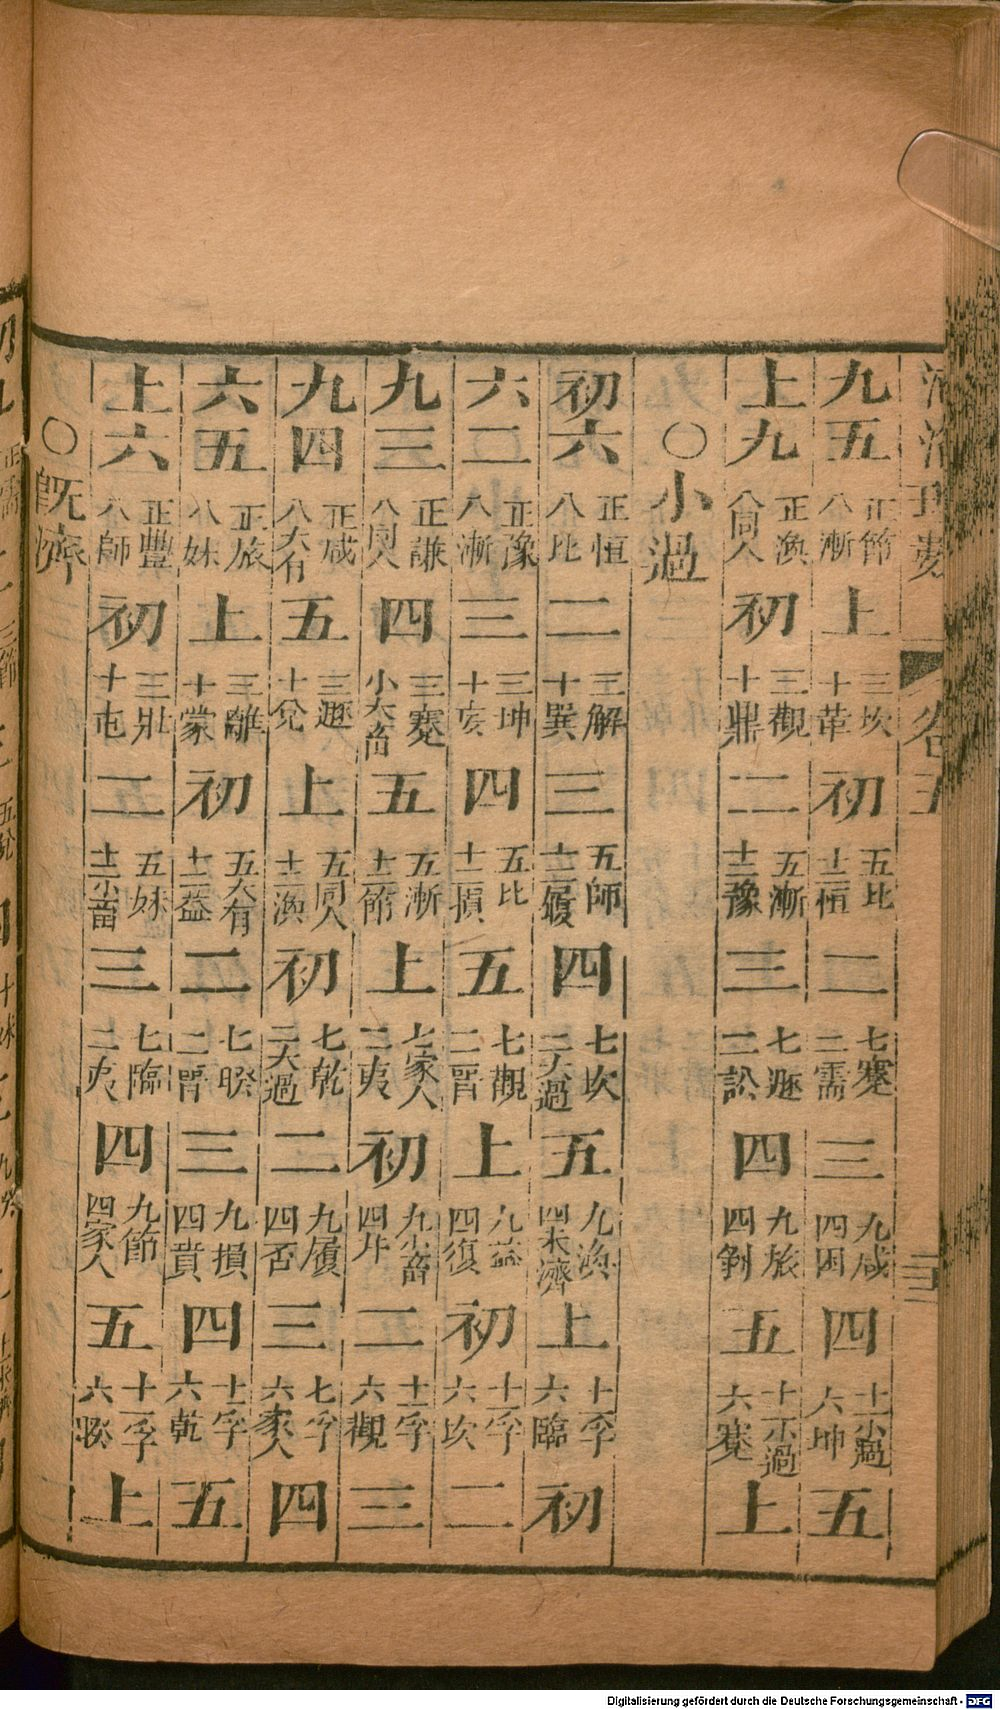 九五 正節 八漸 上 三坎 十革 初 五比 十二恒 二 七蹇 二需 三 九咸 四困 四 十一小過 六坤 五
上九 正渙 八同人 初 三觀 十鼎 二 五漸 十二豫 三 七遯 二訟 四 九旅 四剝 五 十一小過 六蹇 上
○小過
初六 正恒 八比 二 三解 十巽 三 五師 十二履 四 七坎 二大過 五 九渙 四未濟 上 十一孚 六臨 初
六二 正豫 八漸 三 三坤 十 四 五比 十二損 五 七觀 二晋 上 九益 四復 初 十一孚 六坎 二
九三 正謙 八同人 四 三蹇 小大畜 五 五漸 十二節 上 七家人 二夷 初 九小畜 四升 二 十一孚 六觀 三
九四 正咸 八大有 五 三遯 十兌 上 五同人 十二渙 初 七乾 二大過 二 九履 四否 三 七孚 六家人 四
六五 正旅 八妹 上 三離 十蒙 初 五大有 十二益 二 七睽 二晋 三 九損 四賁 四 十一孚 六乾 五
上六 正豐 八師 初 三壯 十屯 二 五妹 十二小畜 三 七臨 二夬 四 九節 四家人 五 十一孚 六睽 上
○既濟
Digitalisierung gefördert durch die Deutsche Forschungsgemeinschaft - DFG